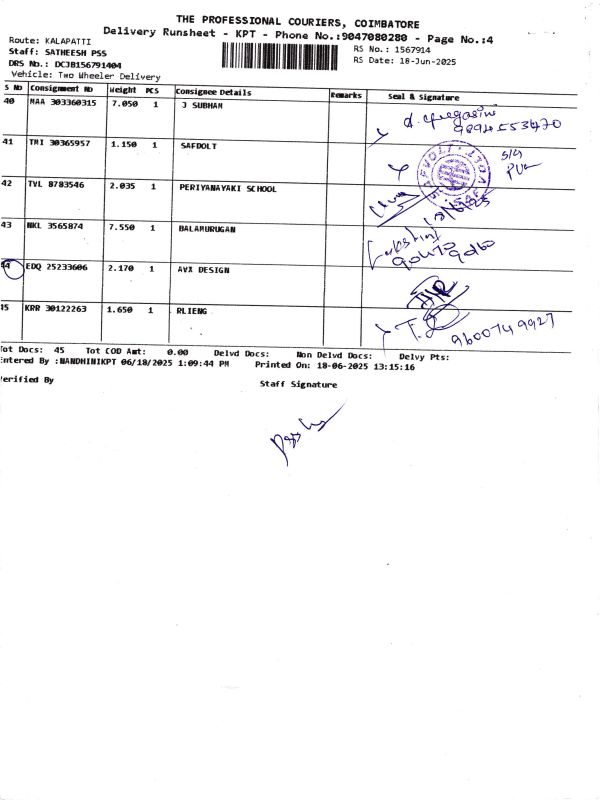 THE PROFESSIONAL COURIERS, COIMBATORE
Delivery Runsheet - KPT - Phone No.:9047080280 - Page No.:4
Route: KALAPATTI
RS No.: 1567914
Staff: SATHEESH PSS
RS Date: 18-Jun-2025
DRS No.: DCJB156791404
Vehicle: Two Wheeler Delivery
S No Consignment No Weight PCS Consignee Details Remarks Seal & Signature
40 MAA 303360315 7.050 1 J SUBHAM
9894553420
41 TMI 30365957 1.150 1 SAFDOLT
42 TVL 8783546 2.035 1 PERIYANAYAKI SCHOOL
43 NKL 3565874 7.550 1 BALAMURUGAN
44 EDQ 25233606 2.170 1 AVX DESIGN
45 KRR 30122263 1.650 1 RLIENG
9600749927
Tot Docs: 45 Tot COD Amt: 0.00 Delvd Docs: Non Delvd Docs: Delvy Pts:
Entered By :NANDHINIKPT 06/18/2025 1:09:44 PM Printed On: 18-06-2025 13:15:16
Verified By Staff Signature